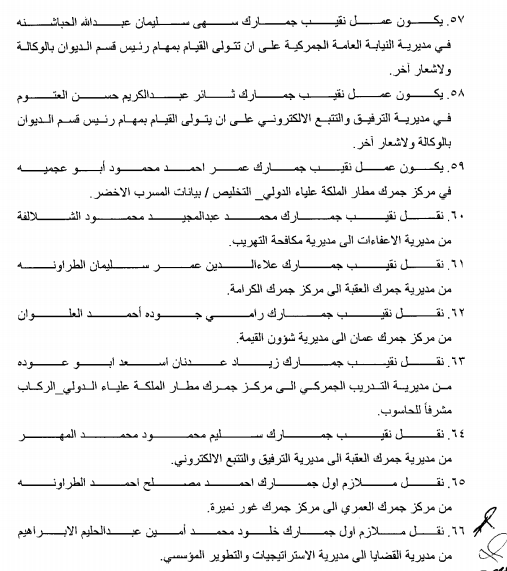 ٥٧. يكون عمل نقيب جمارك سهى سليمان عبدالله الحباشنه
في مديرية النيابة العامة الجمركية على ان تتولى القيام بمهام رئيس قسم الديوان بالوكالة
ولاشعار آخر.
٥٨. يكون عمل نقيب جمارك ثائر عبدالكريم حسن العتوم
في مديرية الترفيق والتتبع الالكتروني على ان يتولى القيام بمهام رئيس قسم الديوان
بالوكالة ولاشعار آخر.
٥٩. يكون عمل نقيب جمارك عمر احمد محمود أبو عجميه
في مركز جمرك مطار الملكة علياء الدولي_ التخليص / بيانات المسرب الاخضر.
٦٠. نقل نقيب جمارك محمد عبدالمجيد محمود الشلالفة
من مديرية الاعفاءات الى مديرية مكافحة التهريب.
٦١. نقل نقيب جمارك علاءالدين عمر سليمان الطراونه
من مديرية جمرك العقبة الى مركز جمرك الكرامة.
٦٢. نقل نقيب جمارك رامي جوده أحمد العلوان
من مركز جمرك عمان الى مديرية شؤون القيمة.
٦٣. نقل نقيب جمارك زياد عدنان اسعد ابو عوده
من مديرية التدريب الجمركي الى مركز جمرك مطار الملكة علياء الدولي_الركاب
مشرفاً للحاسوب.
٦٤. نقل نقيب جمارك سليم محمود محمد المهر
من مديرية جمرك العقبة الى مديرية الترفيق والتتبع الالكتروني.
٦٥. نقل ملازم اول جمارك احمد مصلح احمد الطراونه
من مركز جمرك العمري الى مركز جمرك غور نميرة.
٦٦. نقل ملازم اول جمارك خلود محمد أمين عبدالحليم الابراهيم
من مديرية القضايا الى مديرية الاستراتيجيات والتطوير المؤسسي.